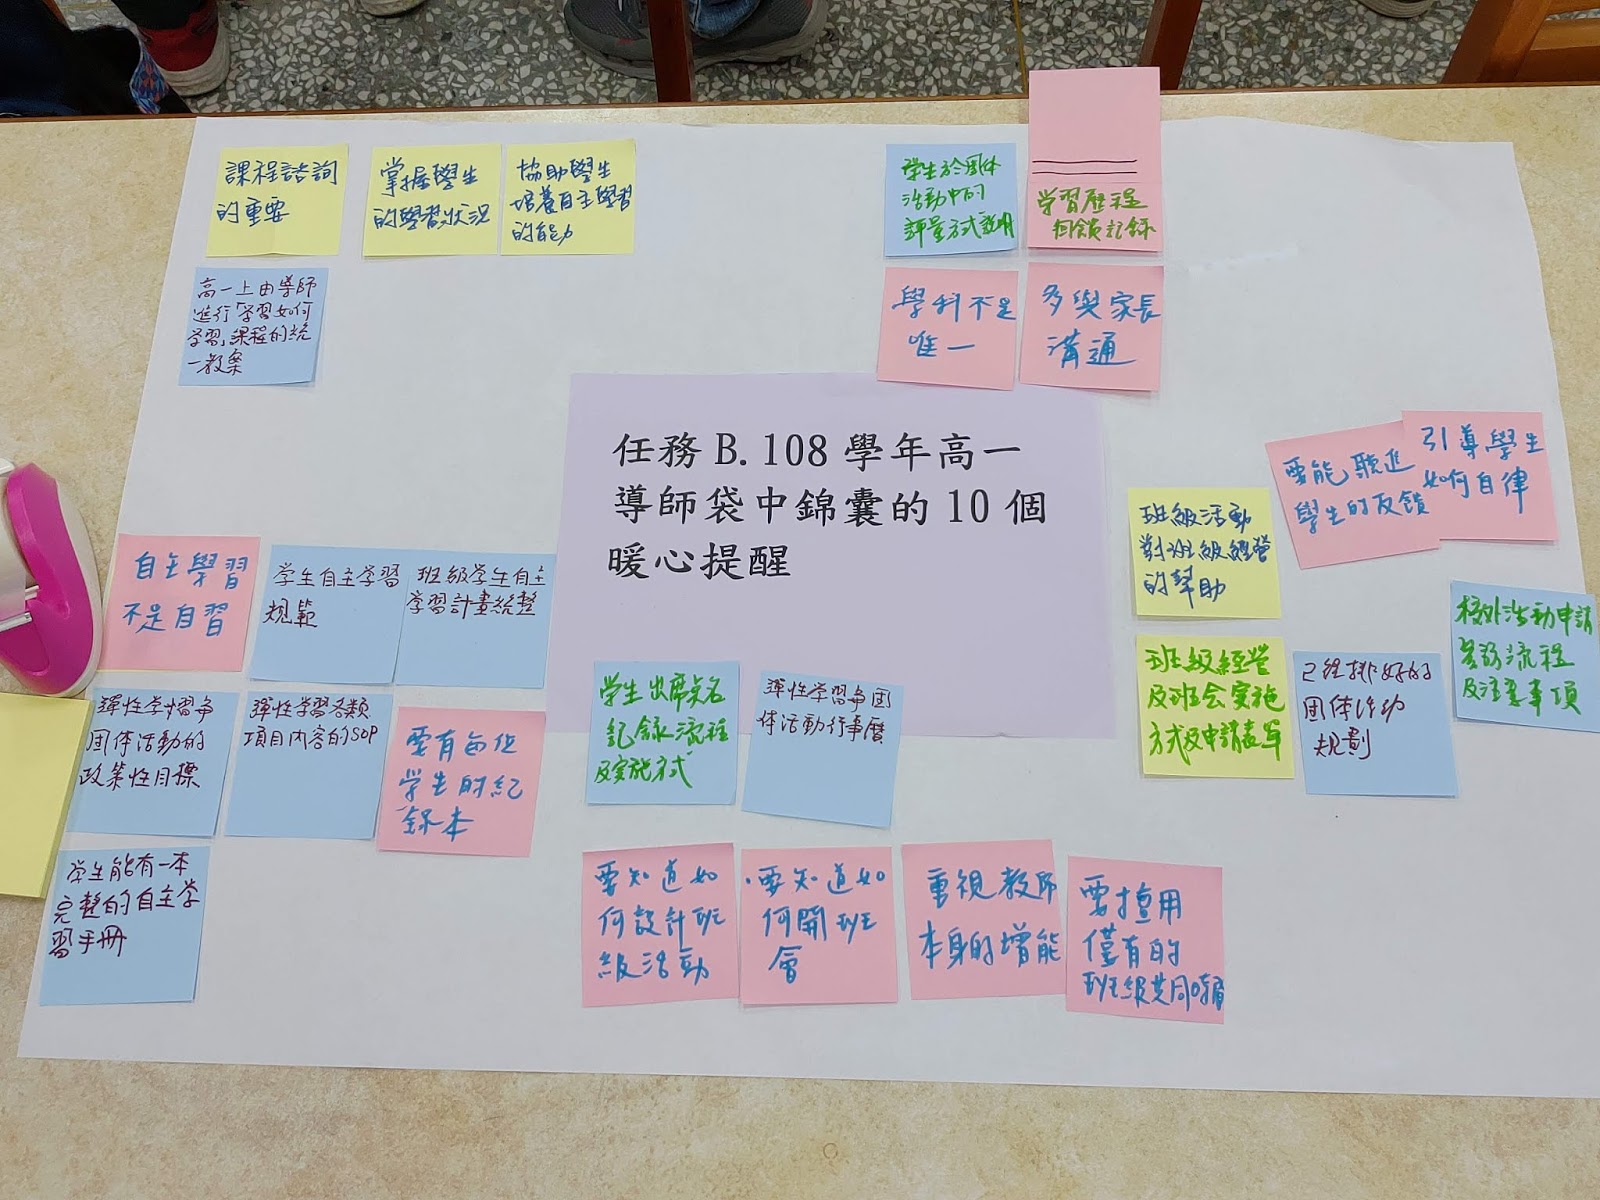 課程諮詢
的重要
掌握學生
的學習狀況
協助學生
培養自主學習
的能力
高一上由導師
進行「学習如何
学習」課程的統
一教案
学生於团体
活動中的
評量方式說明
学習歷程
回饋記錄
學科不是
唯一
多與家長
溝通
任務 B. 108 學年高一
導師袋中錦囊的 10 個
暖心提醒
要能聽進
學生的反饋
引導學生
如何自律
班級活動
對班級經營
的幫助
校外活動申請
流程
及注意事項
班級經營
及班会实施
方式及申請表單
已經排好的
团体活动
規劃
自主學習
不是自習
学生自主学習
規範
班級学生自主
学習計畫統整
彈性学習与
团体活動的
政策性目標
彈性学習各類
項目內容的SOP
要有每位
学生的紀
錄本
学生能有一本
完整的自主学
習手冊
学生出席点名
記錄流程
及实施方式
彈性学習与团
体活動行事曆
要知道如
何設計班
級活動
·要知道如
何開班
會
重視教師
本身的增能
要擅用
僅有的
班級共同時間